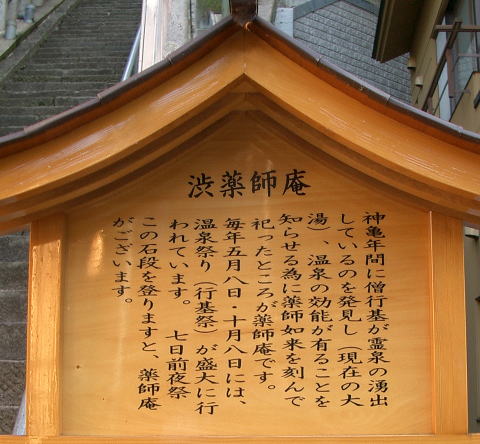 渋薬師庵
神亀年間に僧行基が霊泉の湧出
しているのを発見し（現在の大
湯）、温泉の効能が有ることを
知らせる為に薬師如来を刻んで
祀ったところが薬師庵です。
毎年五月八日・十月八日には、
温泉祭り（行基祭）が盛大に行
われています。　七日前夜祭
この石段を登りますと、薬師庵
がございます。